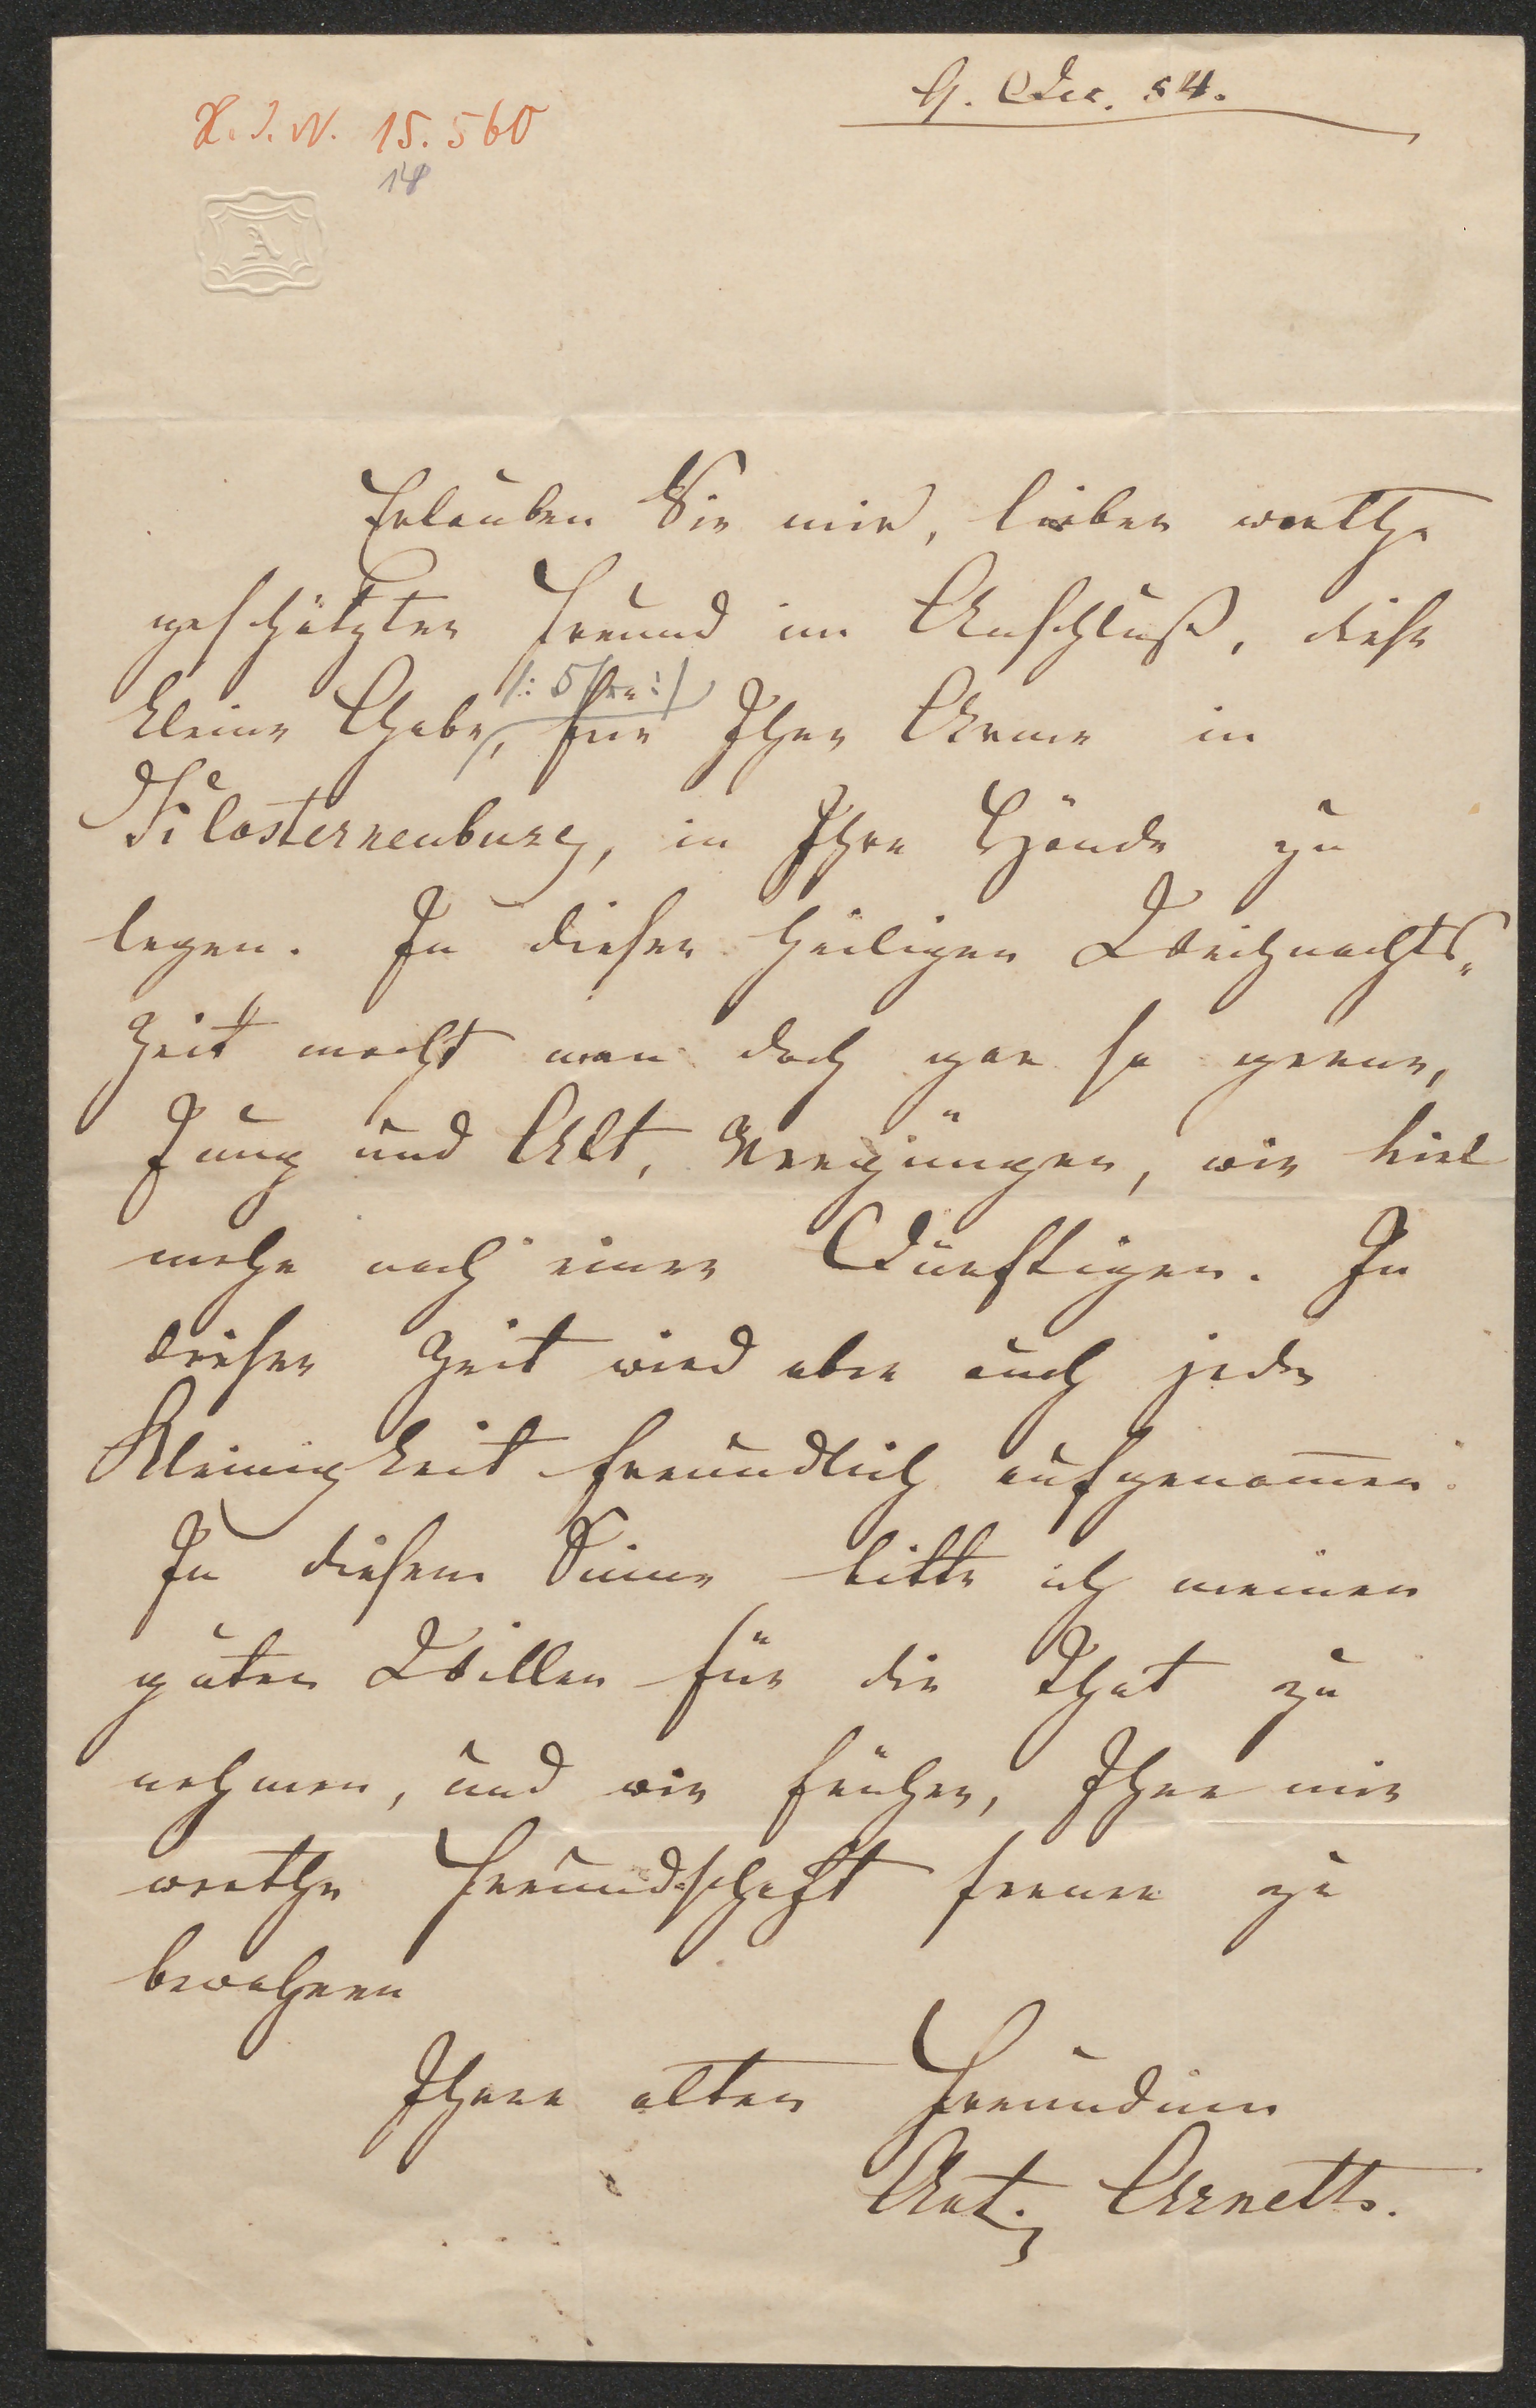 9. Dec. 54.
H. I. N. 15.560
14
A
Erlauben Sie mir, lieber werther
geschätzter Freund im Anschluß, diese
/: 5 f :/
kleine Gabe, für Ihre Armen in
Klosterneuburg, in Ihre Hände zu
legen. In dieser heiligen Weihnachts„
Zeit macht man doch gar so gerne,
Jung und Alt, Vergnügen, wie viel
mehr noch einen Dürftigen. In
dieser Zeit wird aber auch jede
Kleinigkeit freundlich aufgenom̄en.
In diesem Sinne bitte ich meinen
guten Willen für die That zu
nehmen, und wie früher, Ihre mir
werthe Freundschaft ferner zu
bewahren
Ihrer alten Freundinn
Ant. Arneth.